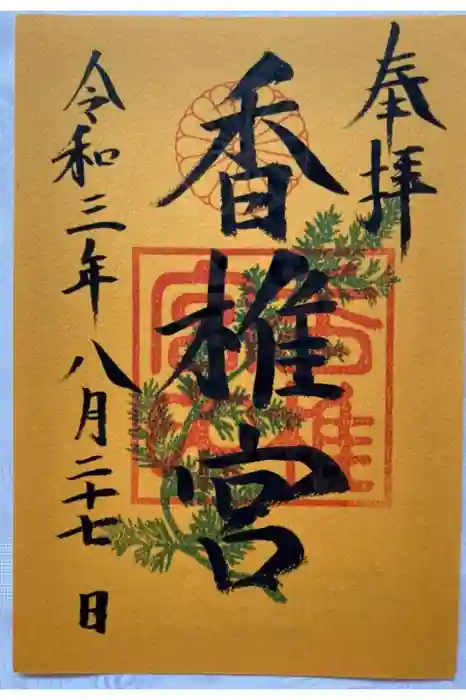 奉拝
香椎宮
令和三年八月二十七日